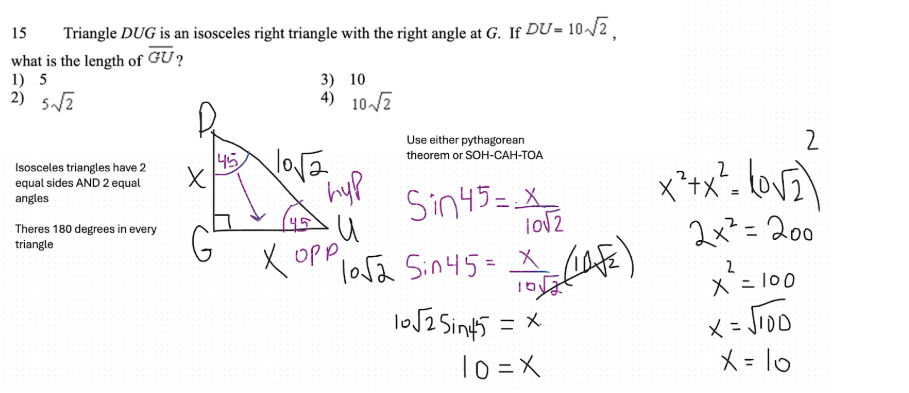 15 Triangle DUG is an isosceles right triangle with the right angle at G. If DU = 10√2,
what is the length of GU?
1) 5
2) 5√2
3) 10
4) 10√2
Isosceles triangles have 2
equal sides AND 2 equal
angles
Theres 180 degrees in every
triangle
D
45
10√2
X
hyp
45
U
G
X opp
Use either pythagorean
theorem or SOH-CAH-TOA
Sin45 = x/10√2
10√2 Sin45 = x/10√2 (10√2)
10√2 Sin45 = x
10 = x
x² + x² = (10√2)²
2x² = 200
x² = 100
x = √100
x = 10